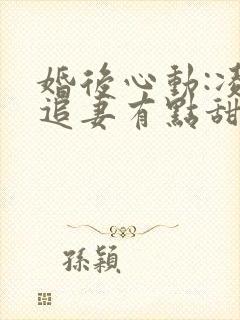 婚後心動:凌
追妻有點甜
孫穎